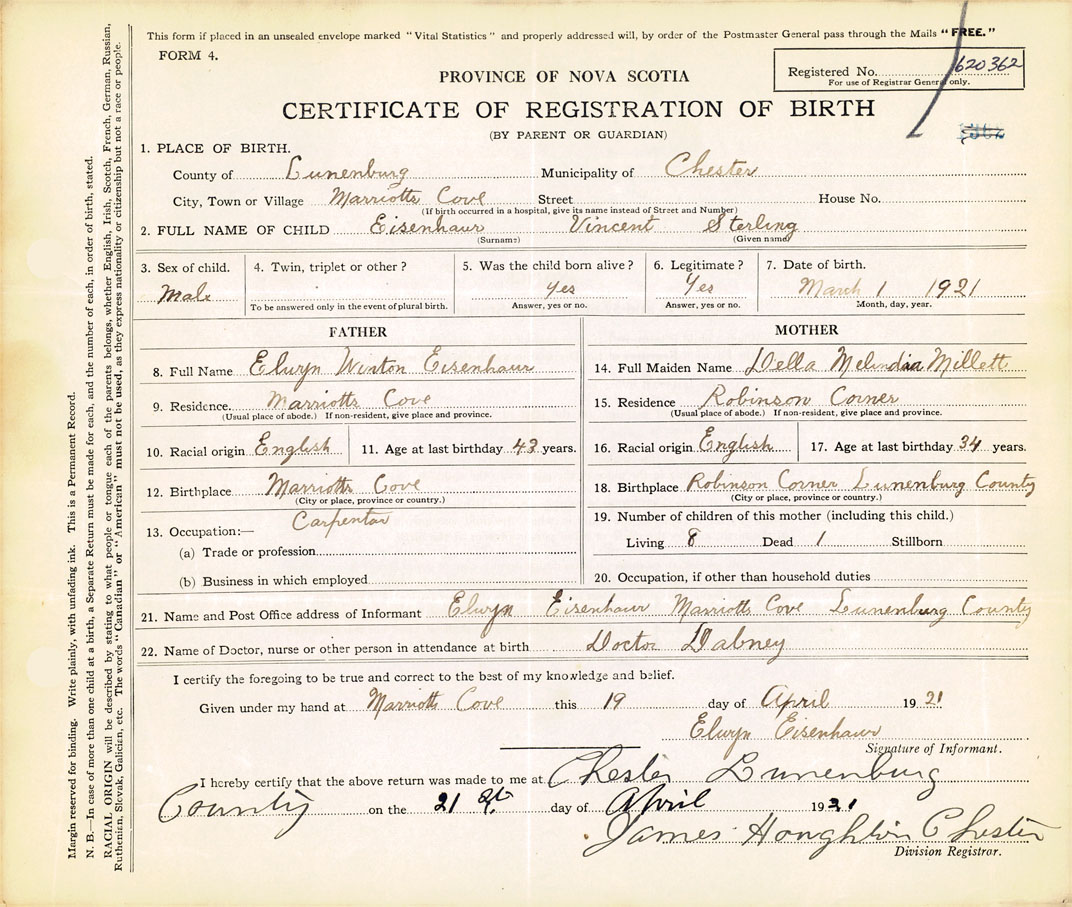 This form if placed in an unsealed envelope marked "Vital Statistics" and properly addressed will, by order of the Postmaster General pass through the Mails "FREE."
FORM 4.
Registered No. 620362
For use of Registrar General only.
PROVINCE OF NOVA SCOTIA
CERTIFICATE OF REGISTRATION OF BIRTH
(BY PARENT OR GUARDIAN)
1. PLACE OF BIRTH.
County of Lunenburg Municipality of Chester
City, Town or Village Marriotts Cove Street House No.
(If birth occurred in a hospital, give its name instead of Street and Number)
2. FULL NAME OF CHILD Eisenhaur Vincent Sterling
(Surname) (Given name)
3. Sex of child. 4. Twin, triplet or other? 5. Was the child born alive? 6. Legitimate? 7. Date of birth.
Male Yes Yes March 1 1921
To be answered only in the event of plural birth. Answer, yes or no. Answer, yes or no. Month, day, year.
FATHER
8. Full Name Elwyn Winton Eisenhaur
9. Residence. Marriotts Cove
(Usual place of abode.) If non-resident, give place and province.
10. Racial origin English 11. Age at last birthday 43 years.
12. Birthplace Marriotts Cove
(City or place, province or country.)
13. Occupation:— Carpentar
(a) Trade or profession
(b) Business in which employed
MOTHER
14. Full Maiden Name Della Melindia Millett
15. Residence Robinson Corner
(Usual place of abode.) If non-resident, give place and province.
16. Racial origin English 17. Age at last birthday 34 years.
18. Birthplace Robinson Corner Lunenburg County
(City or place, province or country.)
19. Number of children of this mother (including this child.)
Living 8 Dead 1 Stillborn
20. Occupation, if other than household duties
21. Name and Post Office address of Informant Elwyn Eisenhaur Marriotts Cove Lunenburg County
22. Name of Doctor, nurse or other person in attendance at birth Doctor Dabney
I certify the foregoing to be true and correct to the best of my knowledge and belief.
Given under my hand at Marriotts Cove this 19 day of April 1921
Elwyn Eisenhaur
Signature of Informant.
I hereby certify that the above return was made to me at Chester Lunenburg
County on the 21 st day of April 1921
James Houghton Chester
Division Registrar.
Margin reserved for binding. Write plainly, with unfading ink. This is a Permanent Record.
N. B.—In case of more than one child at a birth, a Separate Return must be made for each, and the number of each, in order of birth, stated.
RACIAL ORIGIN will be described by stating to what people or tongue each of the parents belongs, whether English, Irish, Scotch, French, German, Russian,
Ruthenien, Slovak, Galician, etc. The words "Canadian" or "American" must not be used, as they express nationality or citizenship but not a race or people.